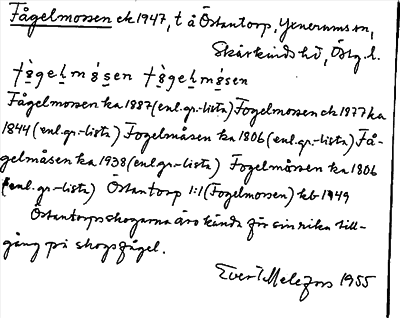 Fågelmossen ek 1947, t å Östantorp, Yxnerums sn,
Skärkinds hd, Östg.l.
Fågelmossen ka 1887 (enl.gr.-lista) Fogelmossen ek 1877 ka
1844 (enl.gr.-lista) Fogelmåsen ka 1806 (enl.gr.-lista) Få-
gelmåsen ka 1938 (enl.gr.-lista) Fogelmåssen ka 1806
(enl.gr.-lista) Östantorp 1:1 (Fogelmossen) kb 1949
Östantorpsskogarna äro kända för sin rika till-
gång på skogsfågel.
Evert Melefors 1955